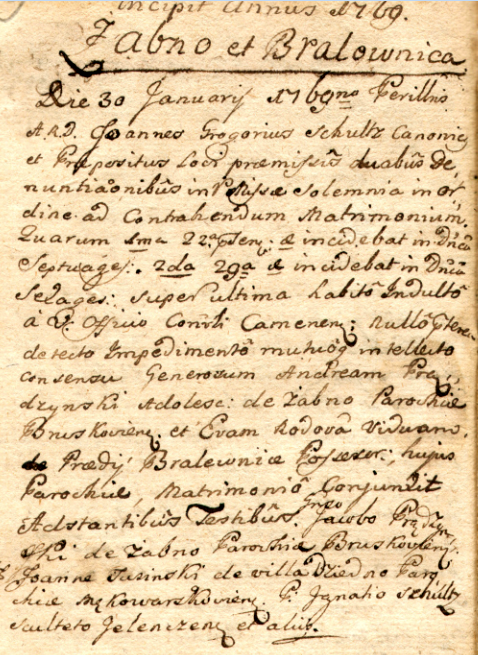 incipit Annus 1769.
Zabno et Bralownica
Die 30 January 1769no Perillris
A.R.D. Joannes Gregorius Schultz Canonic9
et Præpositus Loci præmissis duabus De,
nuntiãonibus inter Missæ Solemnia in or
dine ad Contrahendum Matrimonium,
Quarum 1ma 22a incidebat in Dñca
Septuages: 2da 29a incidebat in Dñca
Sexages: super ultima habitô Indultô
à Officio Camenen; Nullô
detecto Impedimentô mutuoq intellecto
consensu Generosum Andream Prą,
dzynski Adolesc: de Zabno Parochiæ
Bruskovien et Evam Rodova Viduam.
Prædij Bralewnice Possessr: hujus
Parochiæ, Matrimoniô Conjunxit
Adstantibus Testibus. Gnro Jacobo Prądzyn
ski de Zabno Parochiæ Bruskovien.
Joanne Jasinski de villa Dziedno Paro
chiæ Mąkowarskovien. P. Ignatio Schultz
sculteto Jelenczen et alijs.